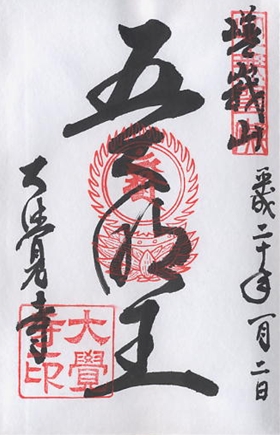 嵯峨山
平成二十年一月二日
五大明王
大覺寺
大覺寺印